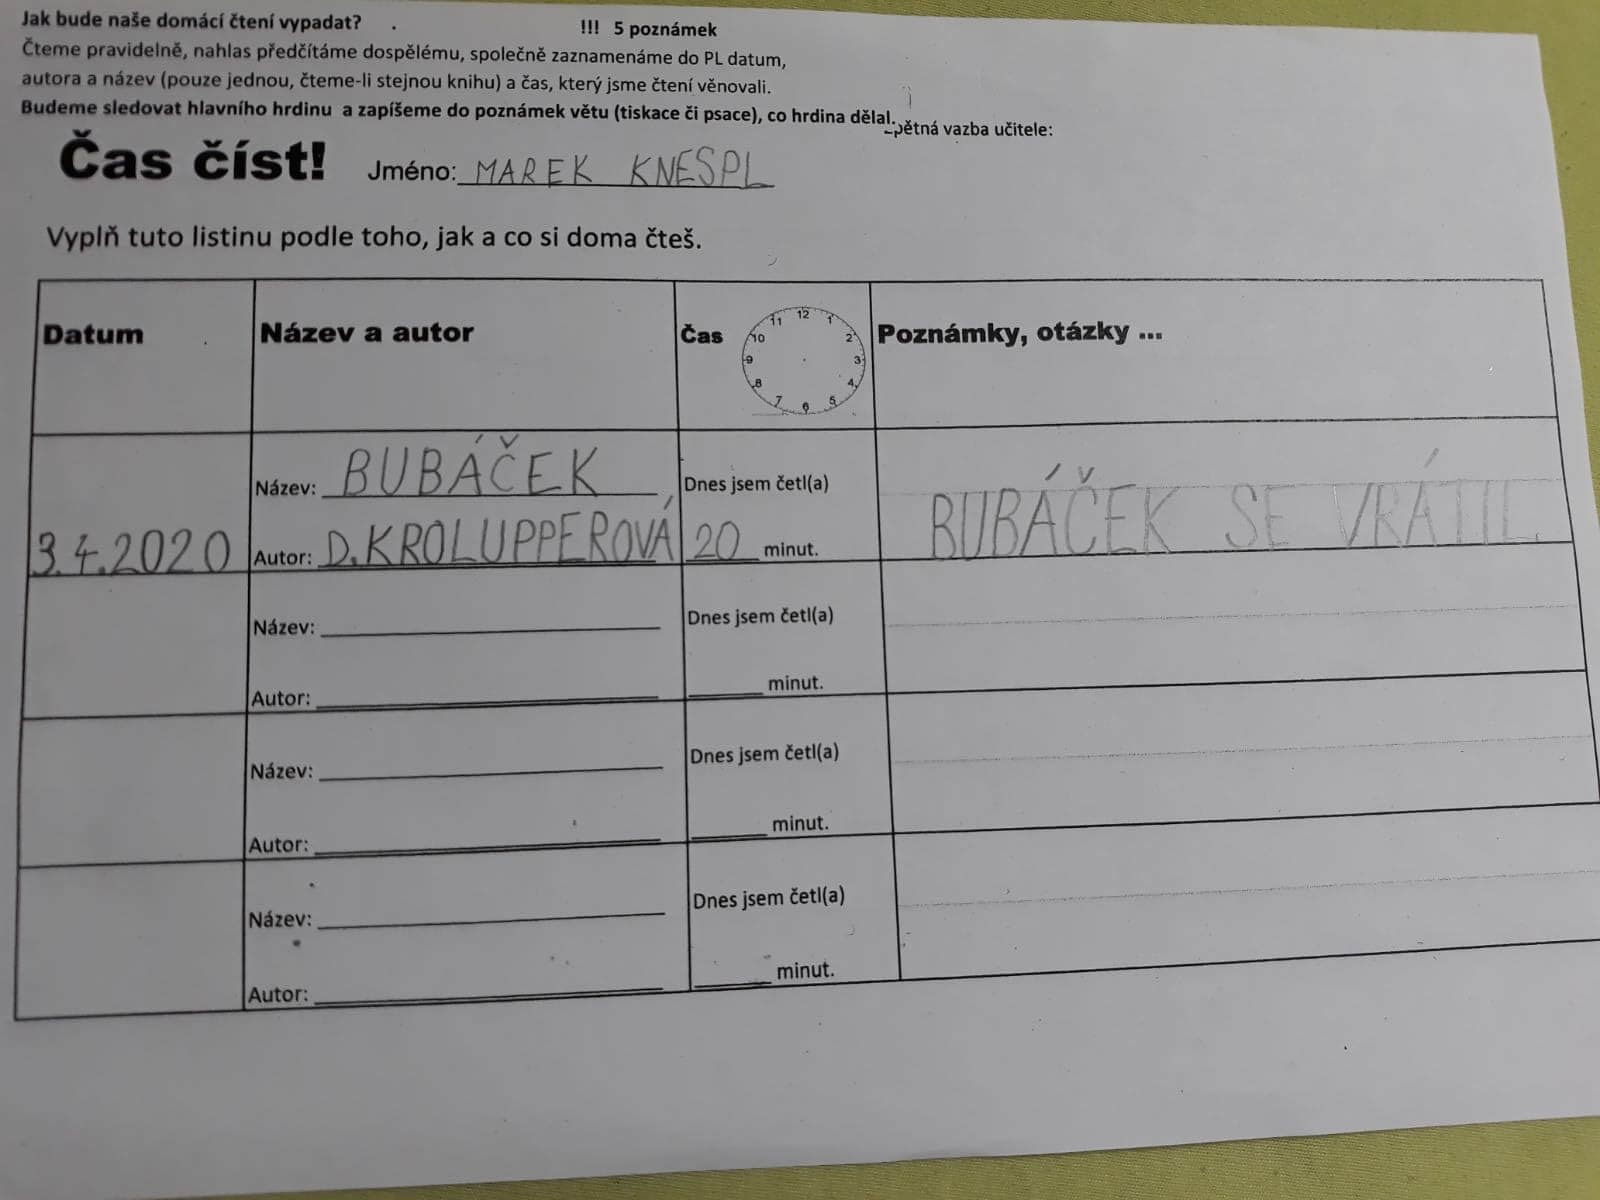 Jak bude naše domácí čtení vypadat? . !!! 5 poznámek
Čteme pravidelně, nahlas předčítáme dospělému, společně zaznamenáme do PL datum,
autora a název (pouze jednou, čteme-li stejnou knihu) a čas, který jsme čtení věnovali.
Budeme sledovat hlavního hrdinu a zapíšeme do poznámek větu (tiskace či psace), co hrdina dělal.
Zpětná vazba učitele:
Čas číst! Jméno: MAREK KNESPL
Vyplň tuto listinu podle toho, jak a co si doma čteš.
Datum Název a autor Čas Poznámky, otázky ...
12 1 2 3 4 5 6 7 8 9 10 11
Název: BUBÁČEK Dnes jsem četl(a)
3.4.2020 Autor: D. KROLUPPEROVÁ 20 minut. BUBÁČEK SE VRÁTIL.
Název: Dnes jsem četl(a)
Autor: minut.
Název: Dnes jsem četl(a)
Autor: minut.
Název: Dnes jsem četl(a)
Autor: minut.